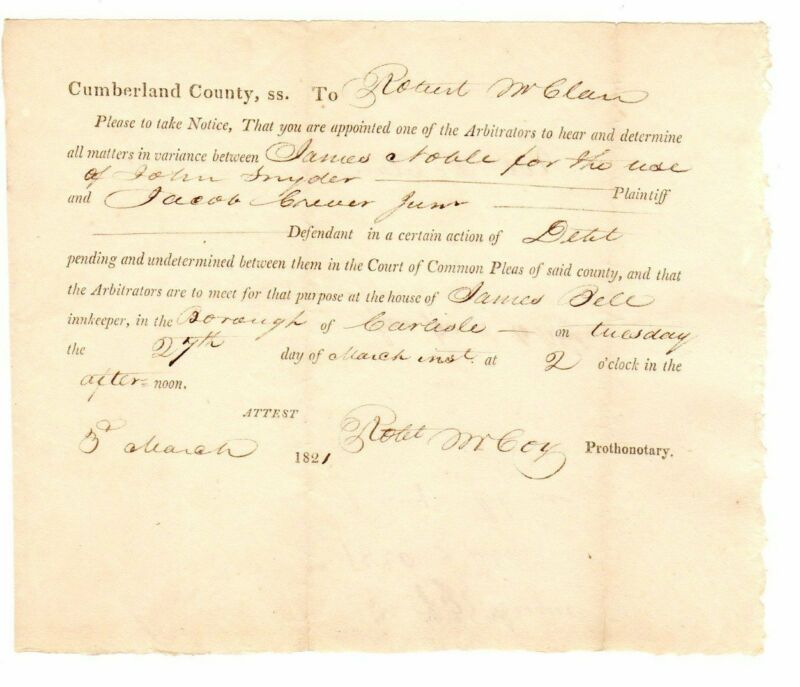 Cumberland County, ss. To Robert McClan
Please to take Notice, That you are appointed one of the Arbitrators to hear and determine
all matters in variance between James Noble for the use
of John Snyder Plaintiff
and Jacob Crever Junr
Defendant in a certain action of Debt
pending and undetermined between them in the Court of Common Pleas of said county, and that
the Arbitrators are to meet for that purpose at the house of James Bell
innkeeper, in the Borough of Carlisle — on tuesday
the 27th day of March inst. at 2 o'clock in the
after noon.
ATTEST
March 1821 Robt McCoy Prothonotary.